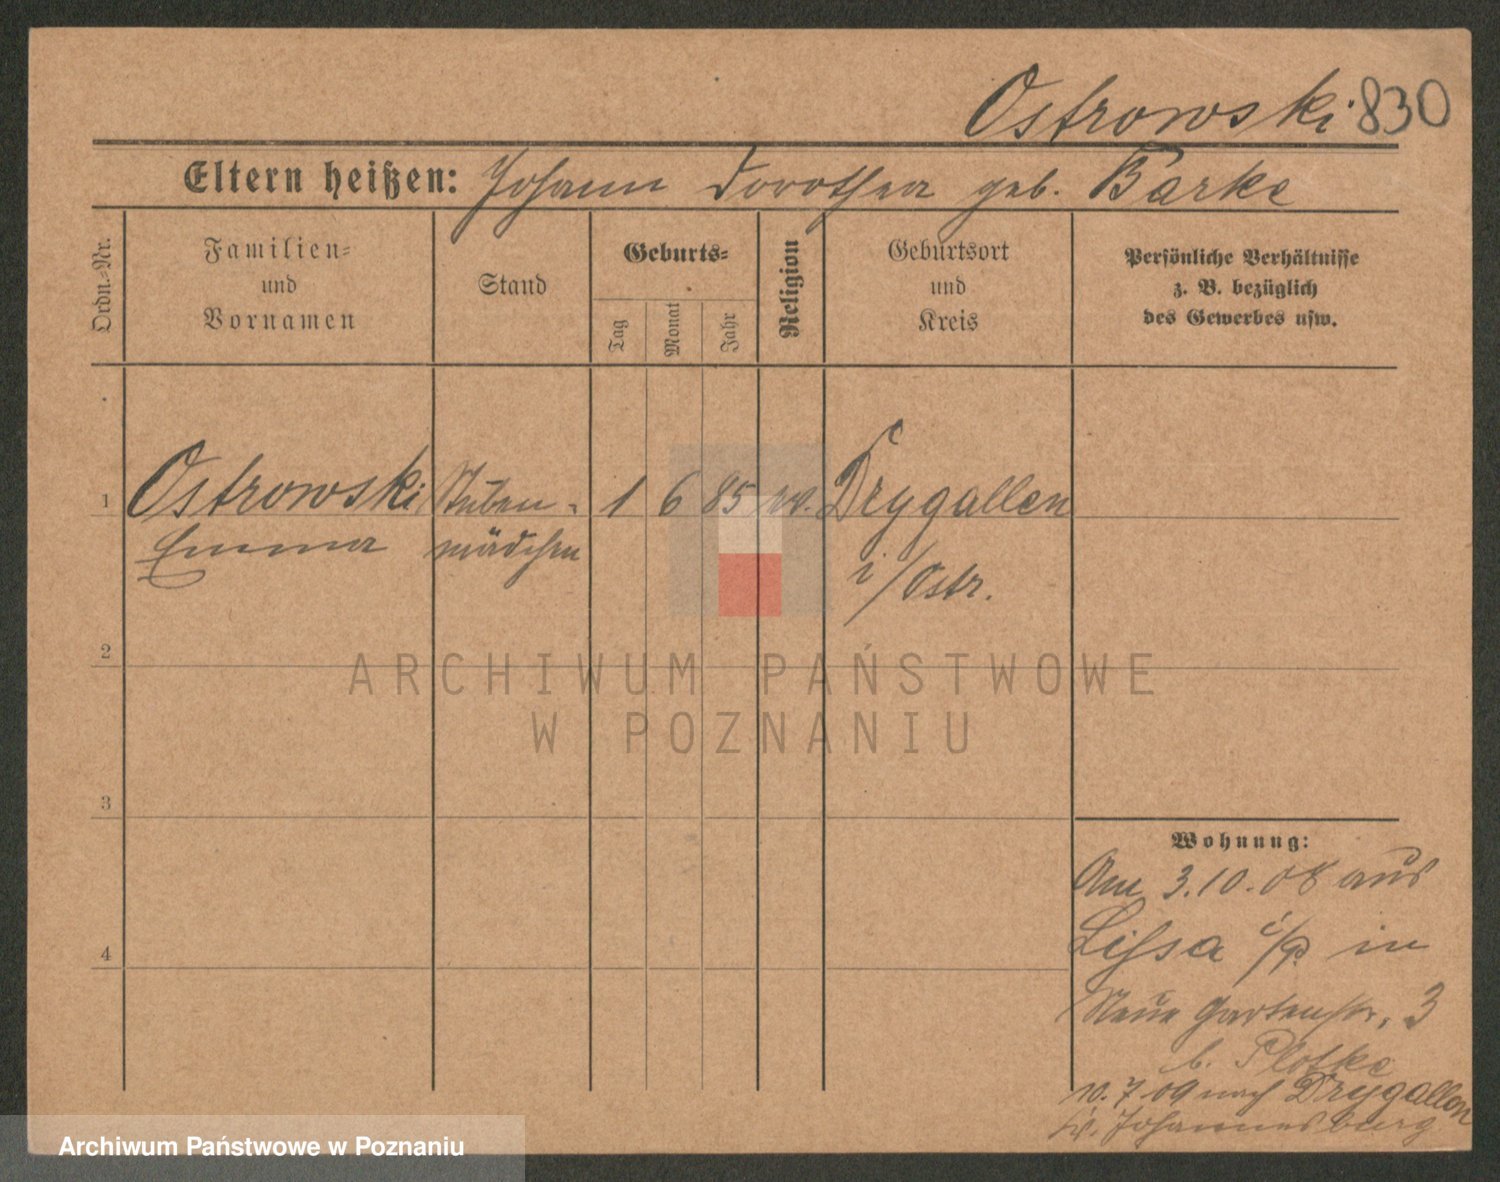 Ostrowski 830
Eltern heißen: Johann Dorothea geb. Barke
Ordn.-Nr.
Familien-
und
Vornamen
Stand
Geburts-
Tag
Monat
Jahr
Religion
Geburtsort
und
Kreis
Persönliche Verhältnisse
z. B. bezüglich
des Gewerbes usw.
1 Ostrowski Stuben- 1 6 85 ev. Drygallen
Emma mädchen i/Ostr.
2
3
4
Wohnung:
Am 3.10.08 aus
Lissa i/P. in
Neue Gartenstr. 3
b. Plotke
10.7.09 nach Drygallen
Kr. Johannesburg
ARCHIWUM PAŃSTWOWE
W POZNANIU
Archiwum Państwowe w Poznaniu